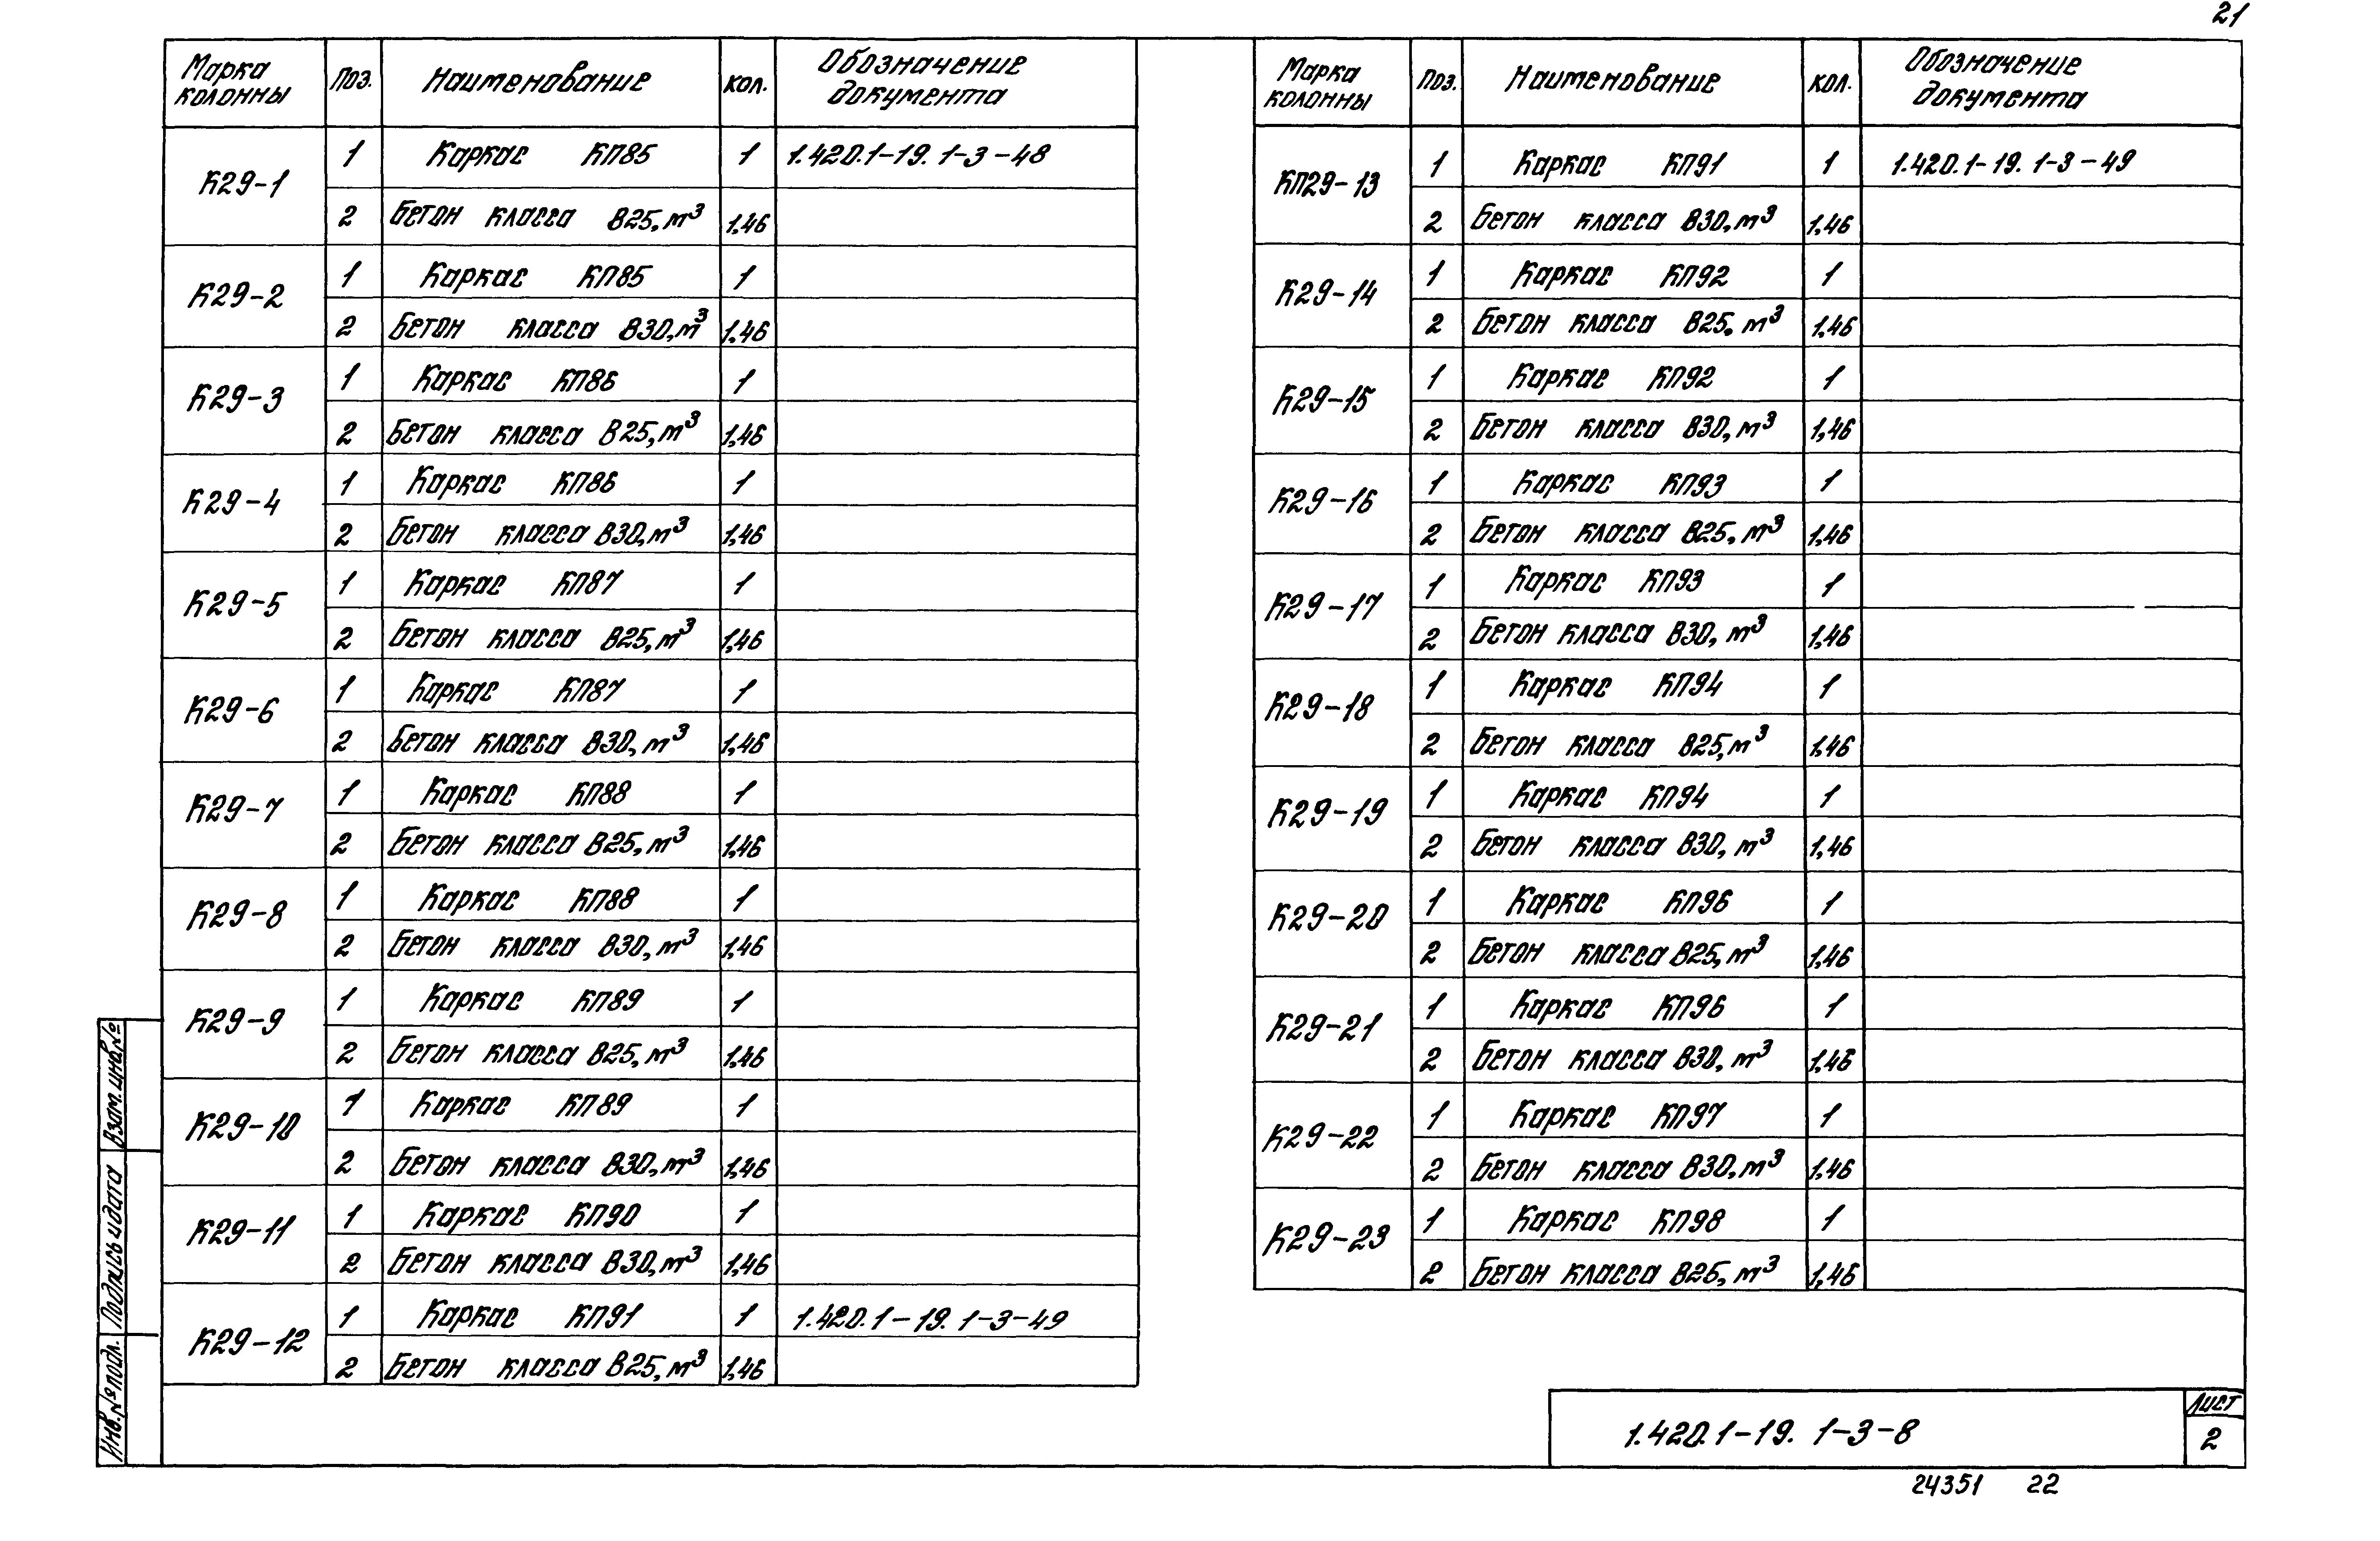 21
Марка колонны Поз. Наименование Кол. Обозначение документа
К29-1 1 Каркас КП85 1 1.420.1-19. 1-3-48
2 Бетон класса В25, м³ 1,46
К29-2 1 Каркас КП85 1
2 Бетон класса В30, м³ 1,46
К29-3 1 Каркас КП86 1
2 Бетон класса В25, м³ 1,46
К29-4 1 Каркас КП86 1
2 Бетон класса В30, м³ 1,46
К29-5 1 Каркас КП87 1
2 Бетон класса В25, м³ 1,46
К29-6 1 Каркас КП87 1
2 Бетон класса В30, м³ 1,46
К29-7 1 Каркас КП88 1
2 Бетон класса В25, м³ 1,46
К29-8 1 Каркас КП88 1
2 Бетон класса В30, м³ 1,46
К29-9 1 Каркас КП89 1
2 Бетон класса В25, м³ 1,46
К29-10 1 Каркас КП89 1
2 Бетон класса В30, м³ 1,46
К29-11 1 Каркас КП90 1
2 Бетон класса В30, м³ 1,46
К29-12 1 Каркас КП91 1 1.420.1-19. 1-3-49
2 Бетон класса В25, м³ 1,46
Марка колонны Поз. Наименование Кол. Обозначение документа
КП29-13 1 Каркас КП91 1 1.420.1-19. 1-3-49
2 Бетон класса В30, м³ 1,46
К29-14 1 Каркас КП92 1
2 Бетон класса В25, м³ 1,46
К29-15 1 Каркас КП92 1
2 Бетон класса В30, м³ 1,46
К29-16 1 Каркас КП93 1
2 Бетон класса В25, м³ 1,46
К29-17 1 Каркас КП93 1
2 Бетон класса В30, м³ 1,46
К29-18 1 Каркас КП94 1
2 Бетон класса В25, м³ 1,46
К29-19 1 Каркас КП94 1
2 Бетон класса В30, м³ 1,46
К29-20 1 Каркас КП96 1
2 Бетон класса В25, м³ 1,46
К29-21 1 Каркас КП96 1
2 Бетон класса В30, м³ 1,46
К29-22 1 Каркас КП97 1
2 Бетон класса В30, м³ 1,46
К29-23 1 Каркас КП98 1
2 Бетон класса В25, м³ 1,46
Взам. инв. №
Подпись и дата
Инв. № подл.
1.420.1-19. 1-3-8
Лист
2
24351 22